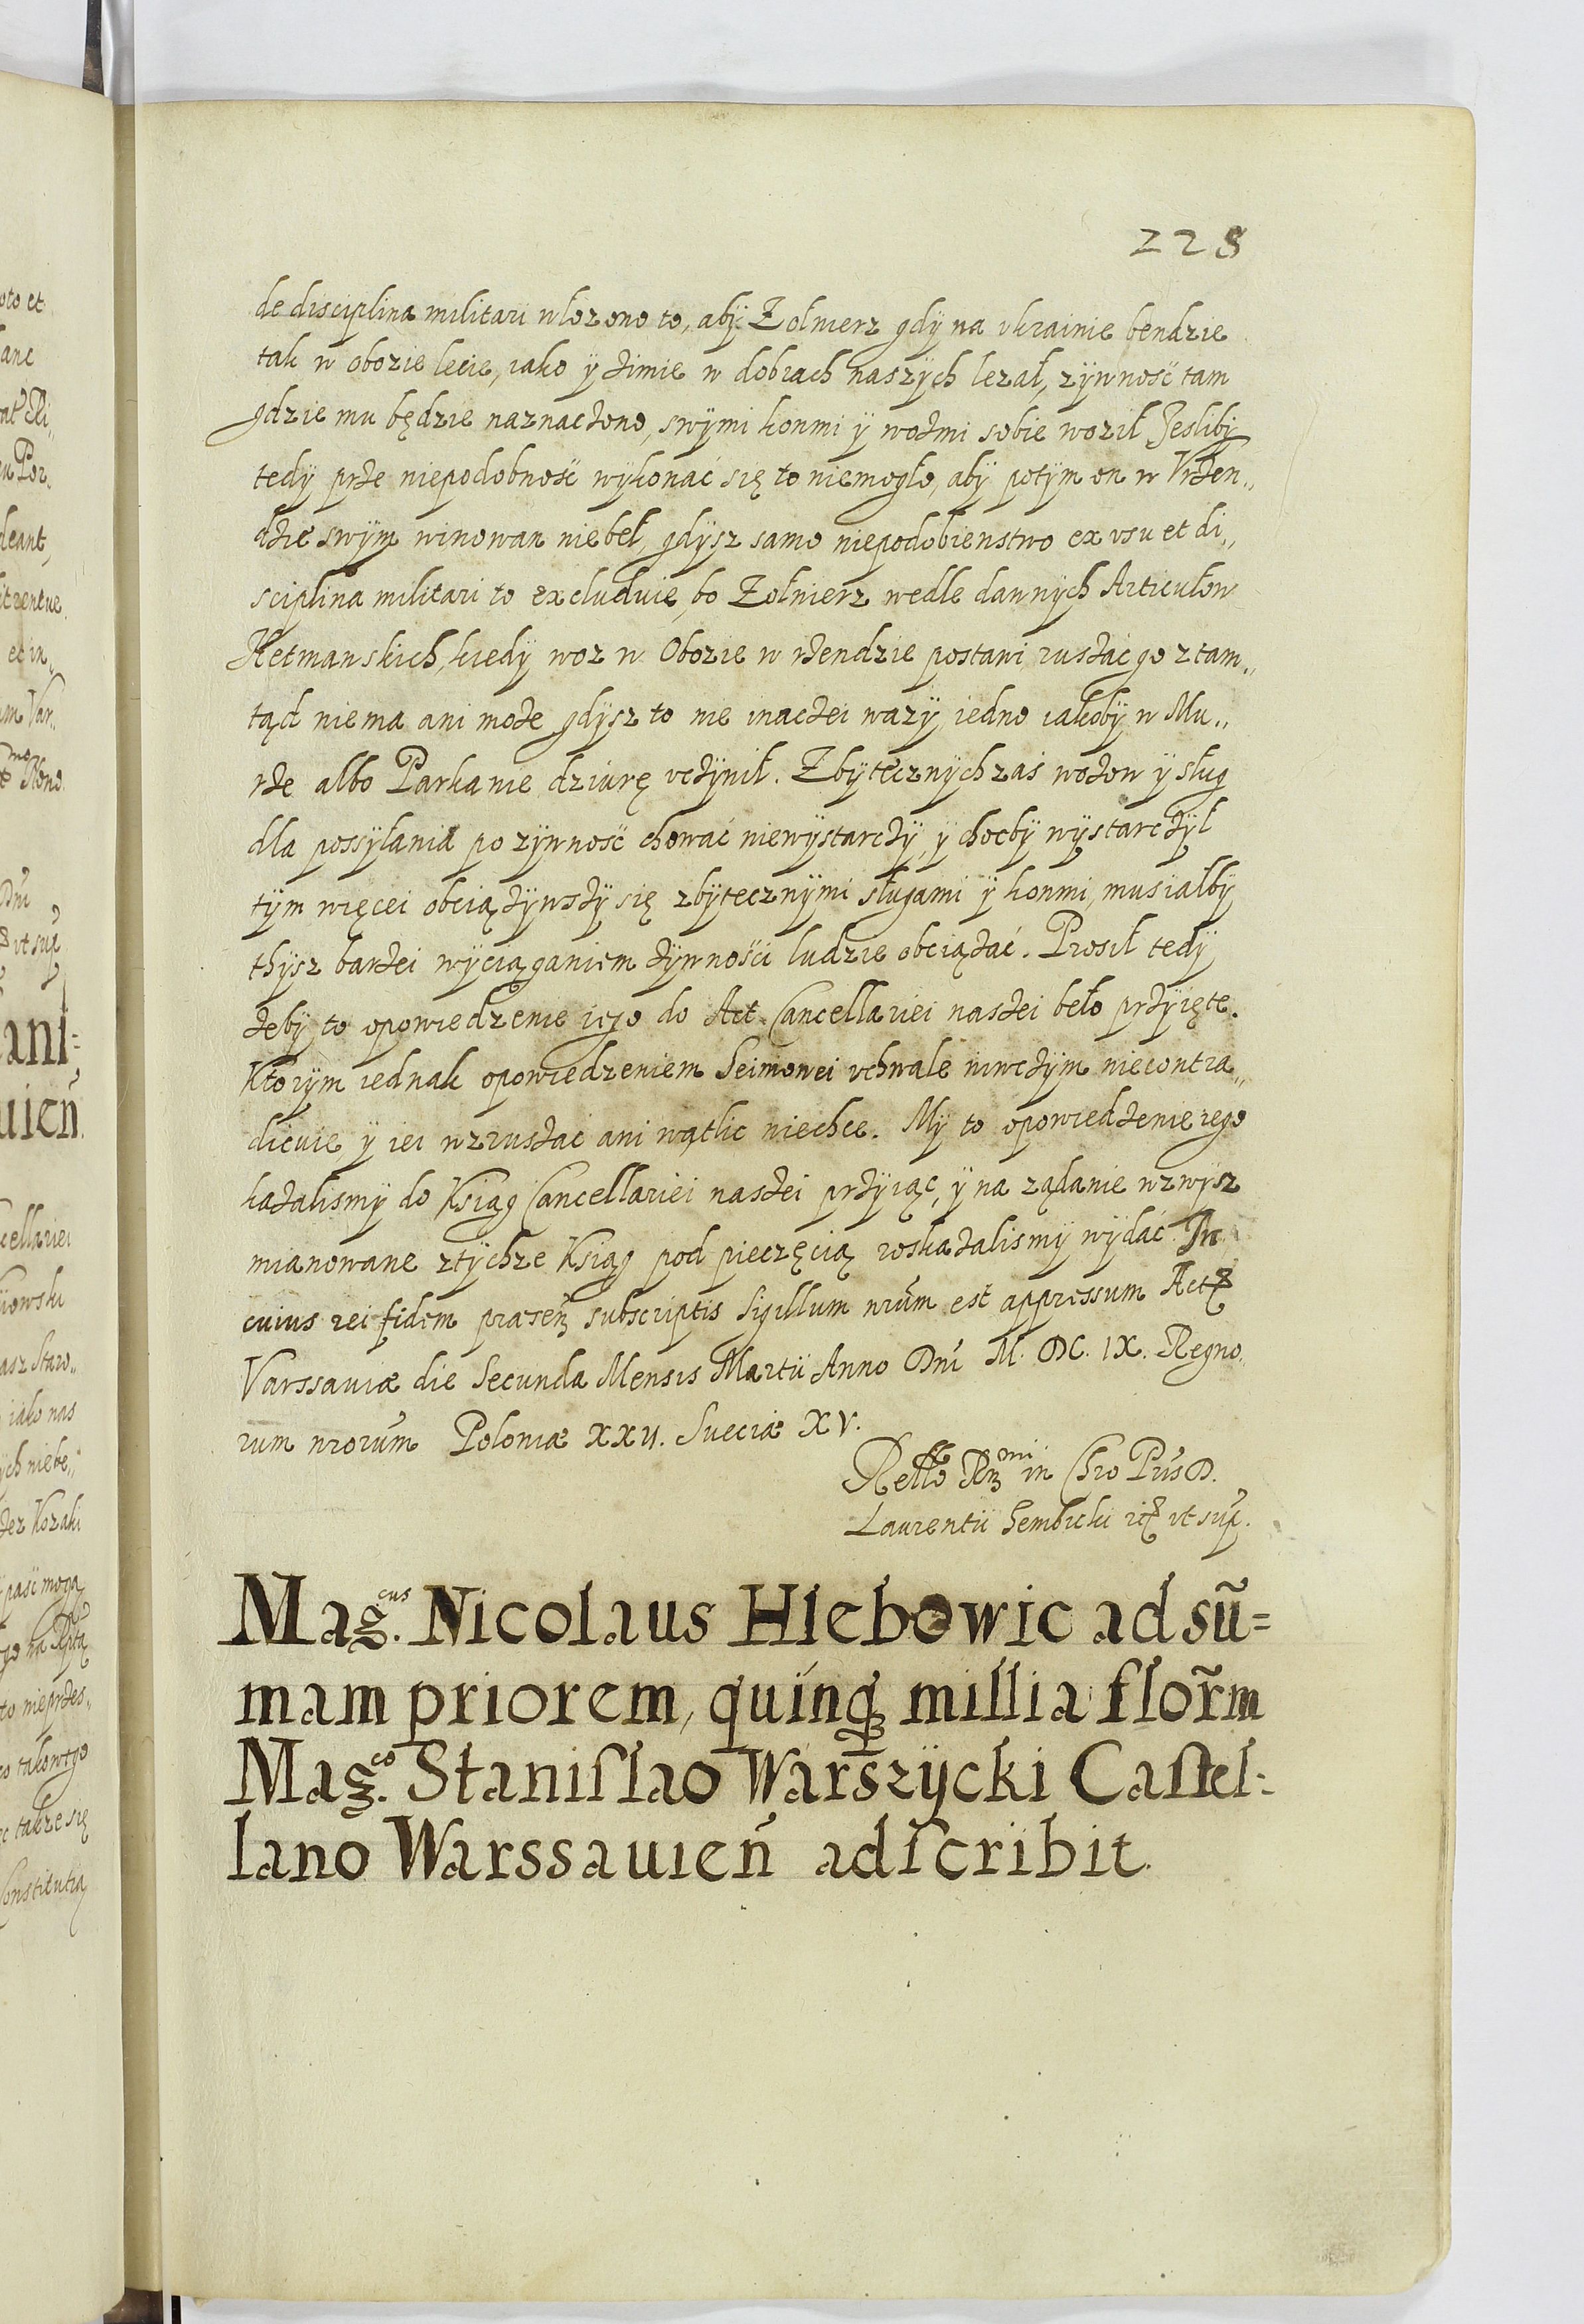 228
de disciplina militari wlozono to, aby Zolnierz gdÿ na vkrainie bendzie
tak w obozie lecie, iako ÿ zimie w dobrach naszÿch lezał, zÿwność tam
gdzie mu będzie naznaczono, swÿmi konmi ÿ wozmi sobie woził Jesliby
tedÿ prze niepodobność wÿkonać się to niemogło, abÿ potÿm on w Vrzen„
dzie swÿm winowan niebeł, gdysz samo niepodobienstwo ex vsu et di„
sciplina militari to excluduie, bo Zołnierz wedle dawnÿch Articułow
Hetmanskich, kiedÿ woz w Obozie w rzendzie postawi, ruszać go ztam„
tąd niema ani może gdÿsz to nie inaczei wazÿ, iedno iakobÿ w Mu„
rze albo Parkanie dziurę vczÿnił. Zbÿtecznÿch zaś wozow ÿ sług
dla possÿłania po zÿwność chować niewÿstarczÿ, ÿ chocbÿ wÿstarczÿł
tÿm więcei obciązÿwszÿ się zbÿtecznÿmi sługami ÿ konmi, musiałbÿ
thÿsz barzei wÿciąganiem zÿwnosći ludzie obciązać. Prosił tedÿ
zebÿ to opowiedzenie iego do Act Cancellariei naszei beło przÿięte.
Ktorÿm iednak opowiedzeniem Seimowei vchwale niwczÿm niecontra„
dicuie ÿ iei wzruszac ani wątlic niechce. Mÿ to opowiedzenie iego
kazalismÿ do Ksiąg Cancellariei naszei przÿiąc, ÿ na ządanie wzwÿsz
mianowane ztÿchze Ksiąg pod pieczęcią roskazalismÿ wÿdać. In
cuius rei fidem præsenꝫ subscriptis Sigillum nrũm est appressum Actꝝ
Varssaviæ die Secunda Mensis Martii Anno Dnĩ M. DC. IX. Regno„
rum nrorũm Poloniæ XXII. Sueciæ XV.
Rello Rꝫmi in Chro Pris D.
Laurentii Gembicki itꝝ vt sup̃.
Mag.cus Nicolaus Hlebowic ad sũ=
mam priorem, quinqꝫ millia flor̃m
Mag.co Staniſlao Warszÿcki Caſtel=
lano Warssauień adſcribit.